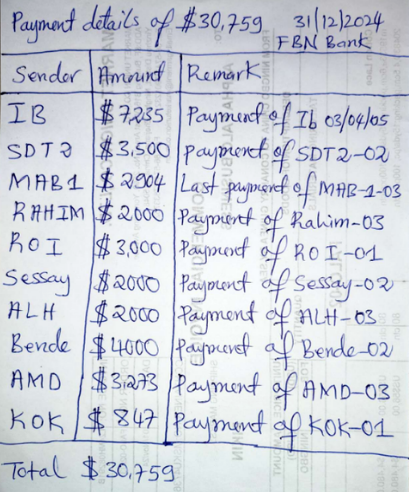 Payment details of $30,759 31/12/2024
FBN Bank
Sender Amount Remark
IB $7,235 Payment of Ib 03/04/05
SDT2 $3,500 Payment of SDT2-02
MAB1 $2904 Last payment of MAB-1-03
RAHIM $2000 Payment of Rahim-03
ROI $3,000 Payment of ROI-01
Sessay $2000 Payment of Sessay-02
ALH $2000 Payment of ALH-03
Bende $4000 Payment of Bende-02
AMD $3,273 Payment of AMD-03
KOK $847 Payment of KOK-01
Total $30,759